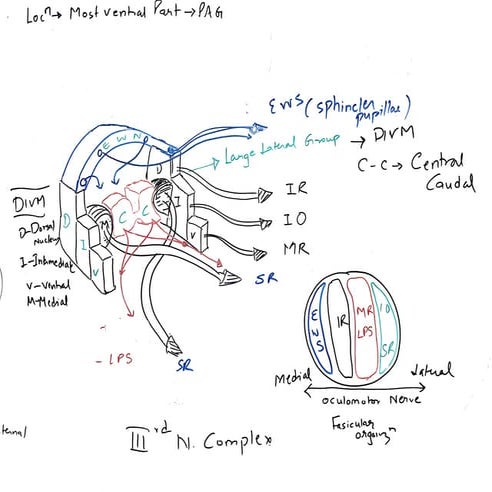 Locⁿ→ Most ventral Part → PAG
EWS (sphincter pupillae)
EWN
Large Lateral Group → DIVM
C-C → Central Caudal
D
I
V
IR
IO
MR
SR
DIVM
D-Dorsal
Nucleus
V-Ventral
M-Medial
D
I
V
M
C C
-LPS
SR
EWS
IR
MR
LPS
IO
SR
Medial
Lateral
Oculomotor Nerve
Fasicular
IIIrd N. Complex